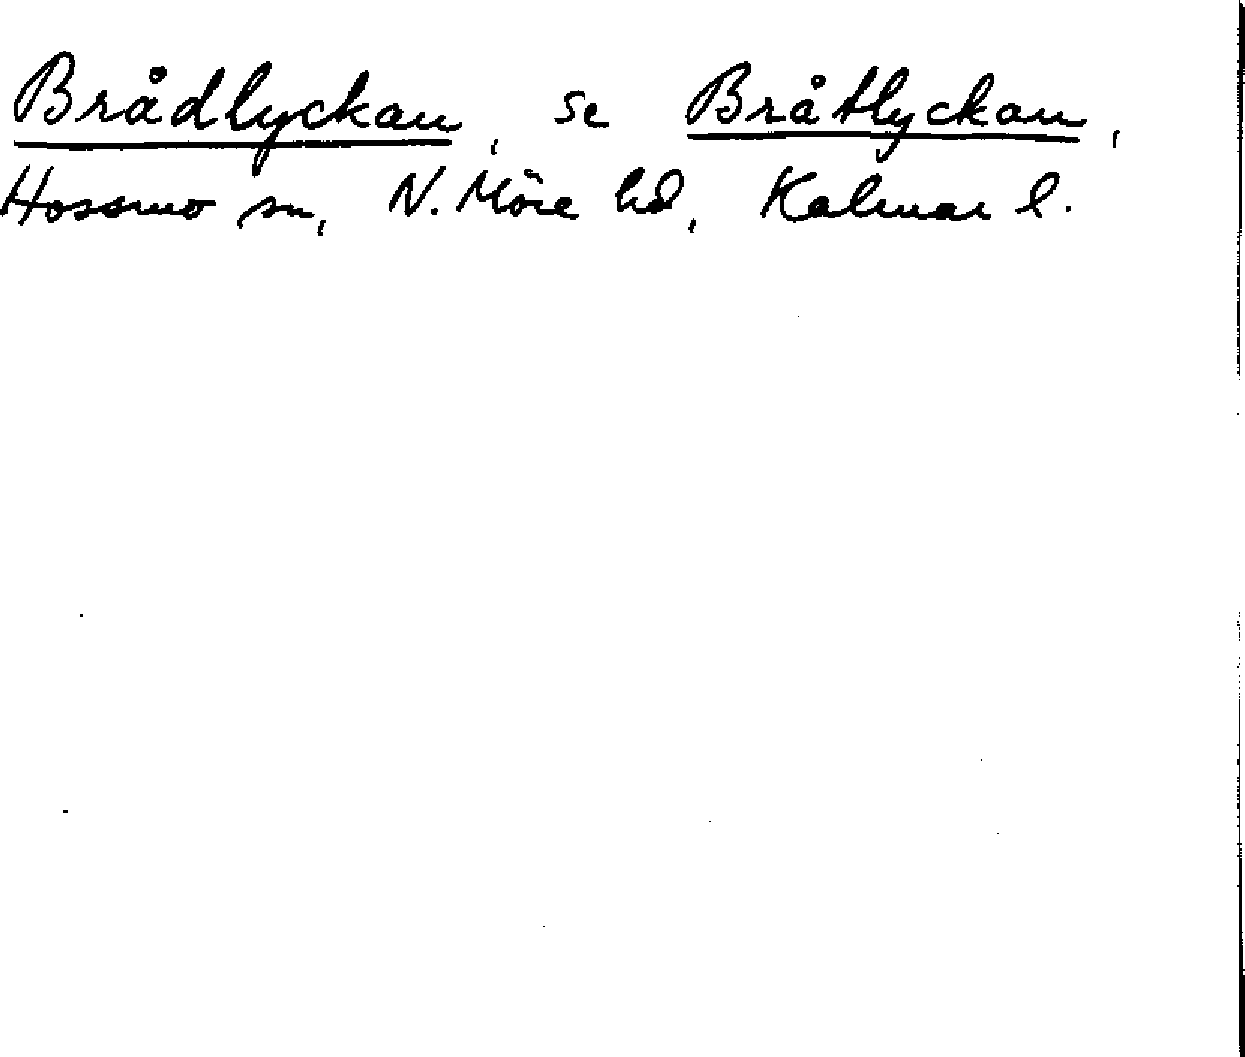 Brådlyckan, se Bråtlyckan,
Hossmo sn, N. Möre hd, Kalmar l.